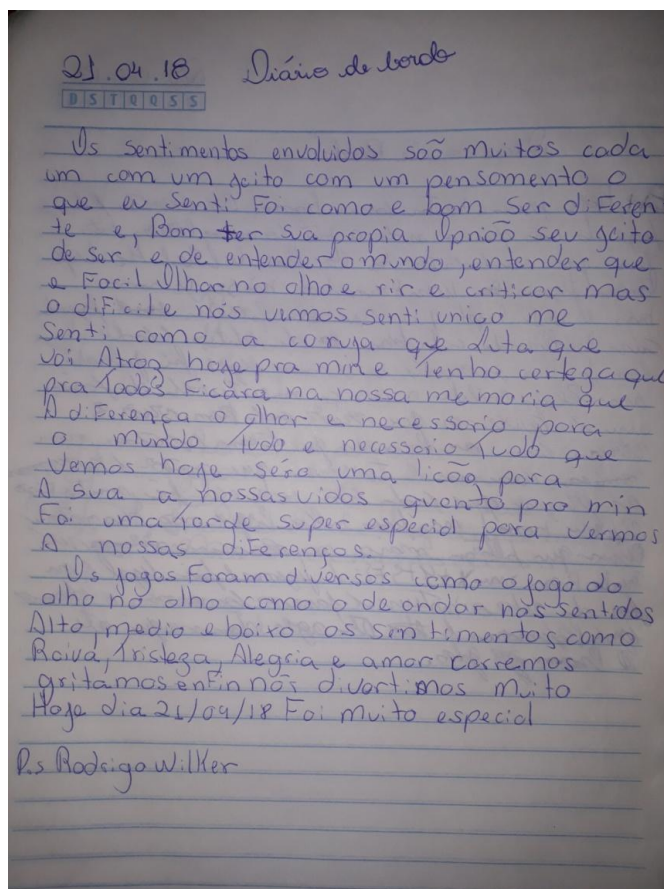 21.04.18 Diário de bordo
D S T Q Q S S
Os sentimentos envolvidos são muitos cada
um com um jeito com um pensamento o
que eu senti Foi como e bom ser diFeren
te e, Bom ter sua propia Opnião seu jeito
de ser e de entender o mundo, entender que
e Facil Olhar no olho e rir e criticar mas
o diFicil e nós vermos senti unico me
Senti como a coruja que luta que
voi Atraz hoje pra mim e Tenho certeza que
pra Todos Ficara na nossa memoria que
A diFerença o olhar e necessario para
o mundo Tudo e necessario Tudo que
Vemos hoje sera uma lição para
A sua a nossas vidas quanto pro min
Foi uma Tarde super especial para vermos
A nossas diFerenças.
Os jogos Foram diversos como o jogo do
olho no olho como o de andar nos sentidos
Alto, medio e baixo os sentimentos como
Raiva, Tristeza, Alegria e amor corremos
gritamos enFin nós divertimos muito
Hoje dia 21/04/18 Foi muito especial
P.s Rodrigo Wilker